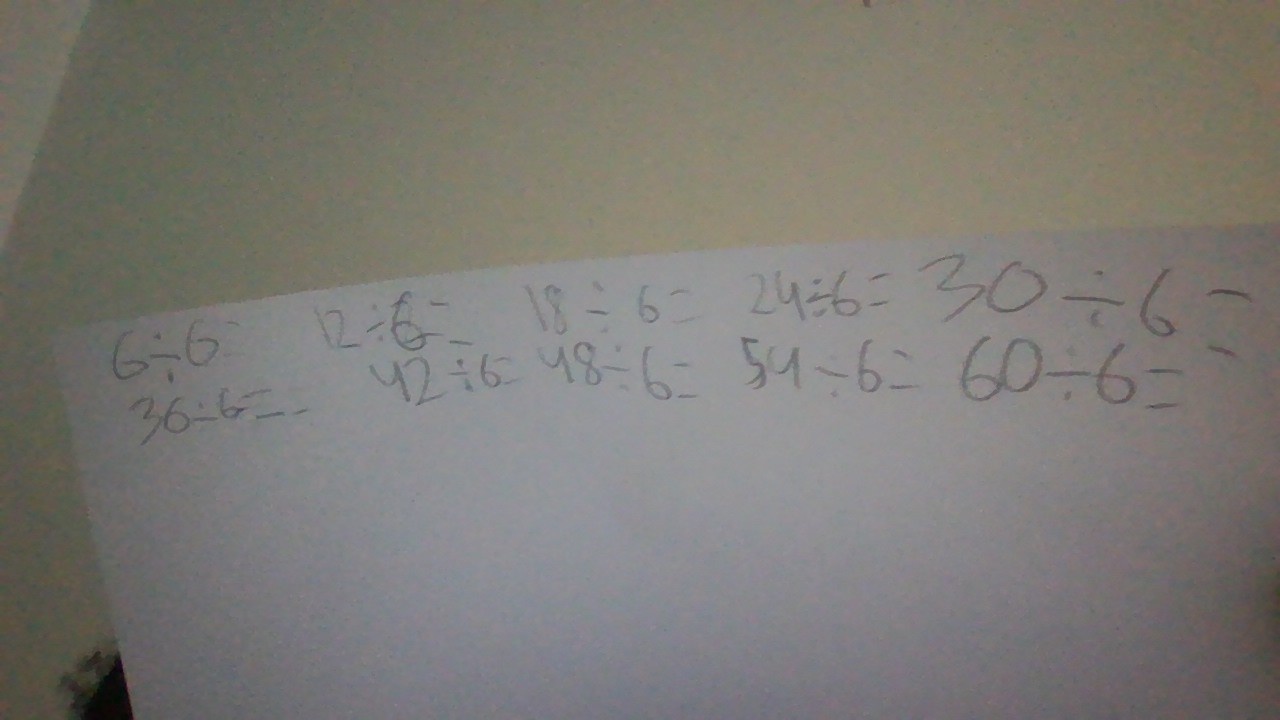 6÷6= 12÷6= 18÷6= 24÷6= 30÷6=
36÷6= 42÷6= 48÷6= 54÷6= 60÷6=